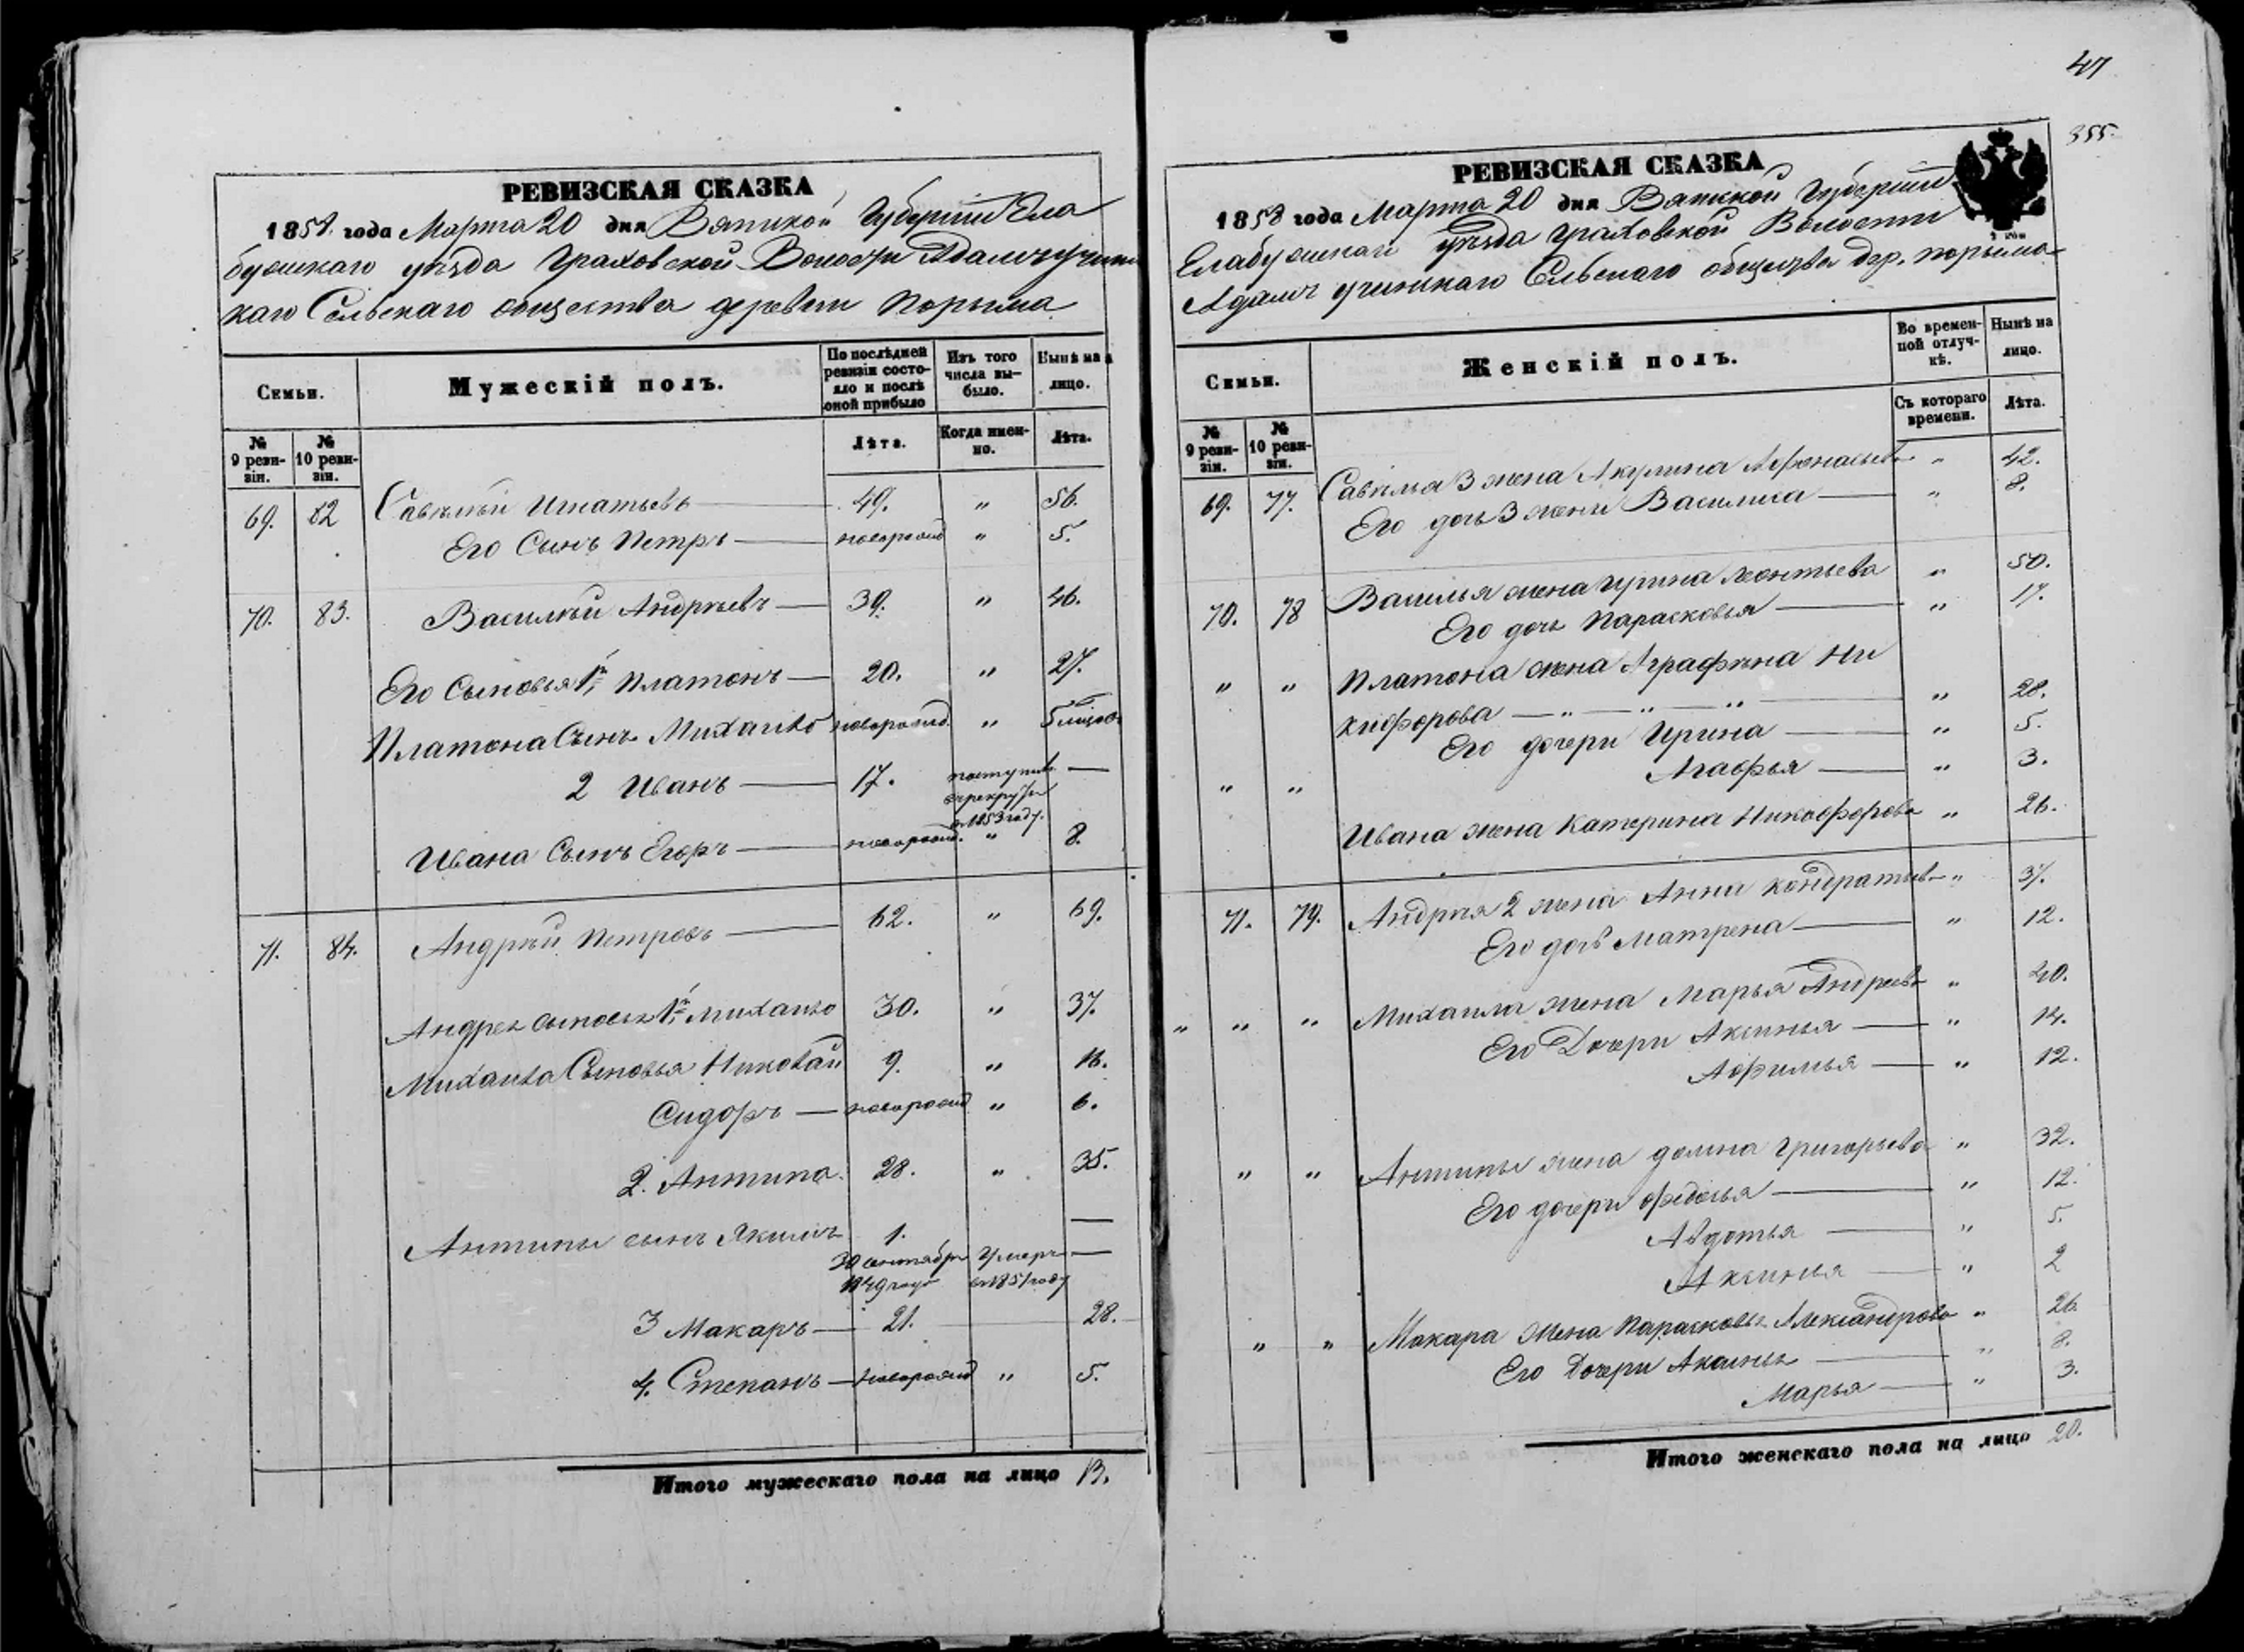 47
355.
РЕВИЗСКАЯ СКАЗКА
1858 года Марта 20 дня Вятской Губерніи Ела
бужскаго уѣзда Граховской Волости
каго Сельскаго общества деревни Порыма
Семьи.
Мужескій полъ.
По послѣдней ревизіи состояло и послѣ оной прибыло
Изъ того числа выбыло.
Нынѣ на лицо.
№ 9 ревизіи.
№ 10 ревизіи.
Лѣта.
Когда именно.
Лѣта.
69. 82 Савелій Игнатьевъ 49. " 56.
Его Сынъ Петръ новорожд " 5.
70. 83. Василій Андреевъ 39. " 46.
Его Сыновья 1й Платонъ 20. " 27.
Платона Сынъ Михайло новорожд. "
2 Иванъ 17. поступилъ —
въ рекруты
в 1853 году.
Ивана Сынъ Егоръ новорожд. " 8.
71. 84. Андрей Петровъ 62. " 69.
Андрея сыновья 1й Михайло 30. " 37.
Михайла Сыновья Николай 9. " 16.
Сидоръ новорожд " 6.
2. Антипа. 28. " 35.
Антипы сынъ Якимъ 1. —
30 сентября Умеръ —
1849 года в 1851 году
3 Макаръ 21. 28.
4. Степанъ новорожд " 5.
Итого мужескаго пола на лицо 13.
РЕВИЗСКАЯ СКАЗКА
1858 года Марта 20 дня Вятской Губерніи
Елабужскаго уѣзда Граховской Волости
Сельскаго общества дер. Порыма
Семьи.
Женскій полъ.
Во временной отлучкѣ.
Нынѣ на лицо.
№ 9 ревизіи.
№ 10 ревизіи.
Съ котораго времени.
Лѣта.
69. 77. Савелья 3 жена Акулина Афонасьева " 42.
Его дочь 3 жены Василиса " 8.
70. 78 Василья жена Ирина Леонтьева " 50.
Его дочь Парасковья " 17.
" " Платона жена Аграфена Ни
кифорова — " — " — " " 28.
Его дочери Ирина " 5.
" " Агафья " 3.
Ивана жена Катерина Никифорова " 26.
71. 79. Андрея 2 жена Анна Кондратьева " 37.
Его дочь Матрена " 12.
" " " Михаила жена Марья Андреева " 40.
Его Дочери Аксинья " 14.
Афимья " 12.
" " Антипы жена Домна Григорьева " 32.
Его дочери Федосья " 12.
Авдотья " 5.
Аксинья " 2
" " Макара жена Парасковья Александрова " 26
Его Дочери Аксинья " 8.
Марья " 3.
Итого женскаго пола на лицо 20.